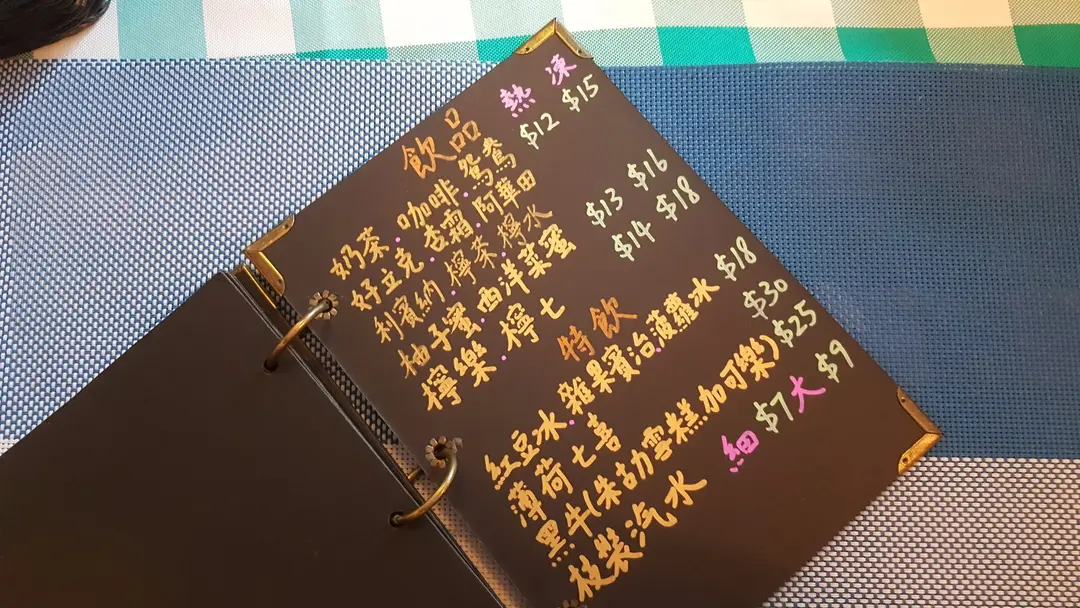 飲品 熱 凍
奶茶.咖啡.鴛鴦 $12 $15
好立克.杏霜.阿華田
利賓納.檸茶.檸水
柚子蜜.西洋菜蜜 $13 $16
檸樂.檸七 $14 $18
特飲
紅豆冰.雜果賓治.菠蘿冰 $18
薄荷七喜 $30
黑牛(朱古力雪糕加可樂) $25
枝裝汽水 細 $7 大 $9